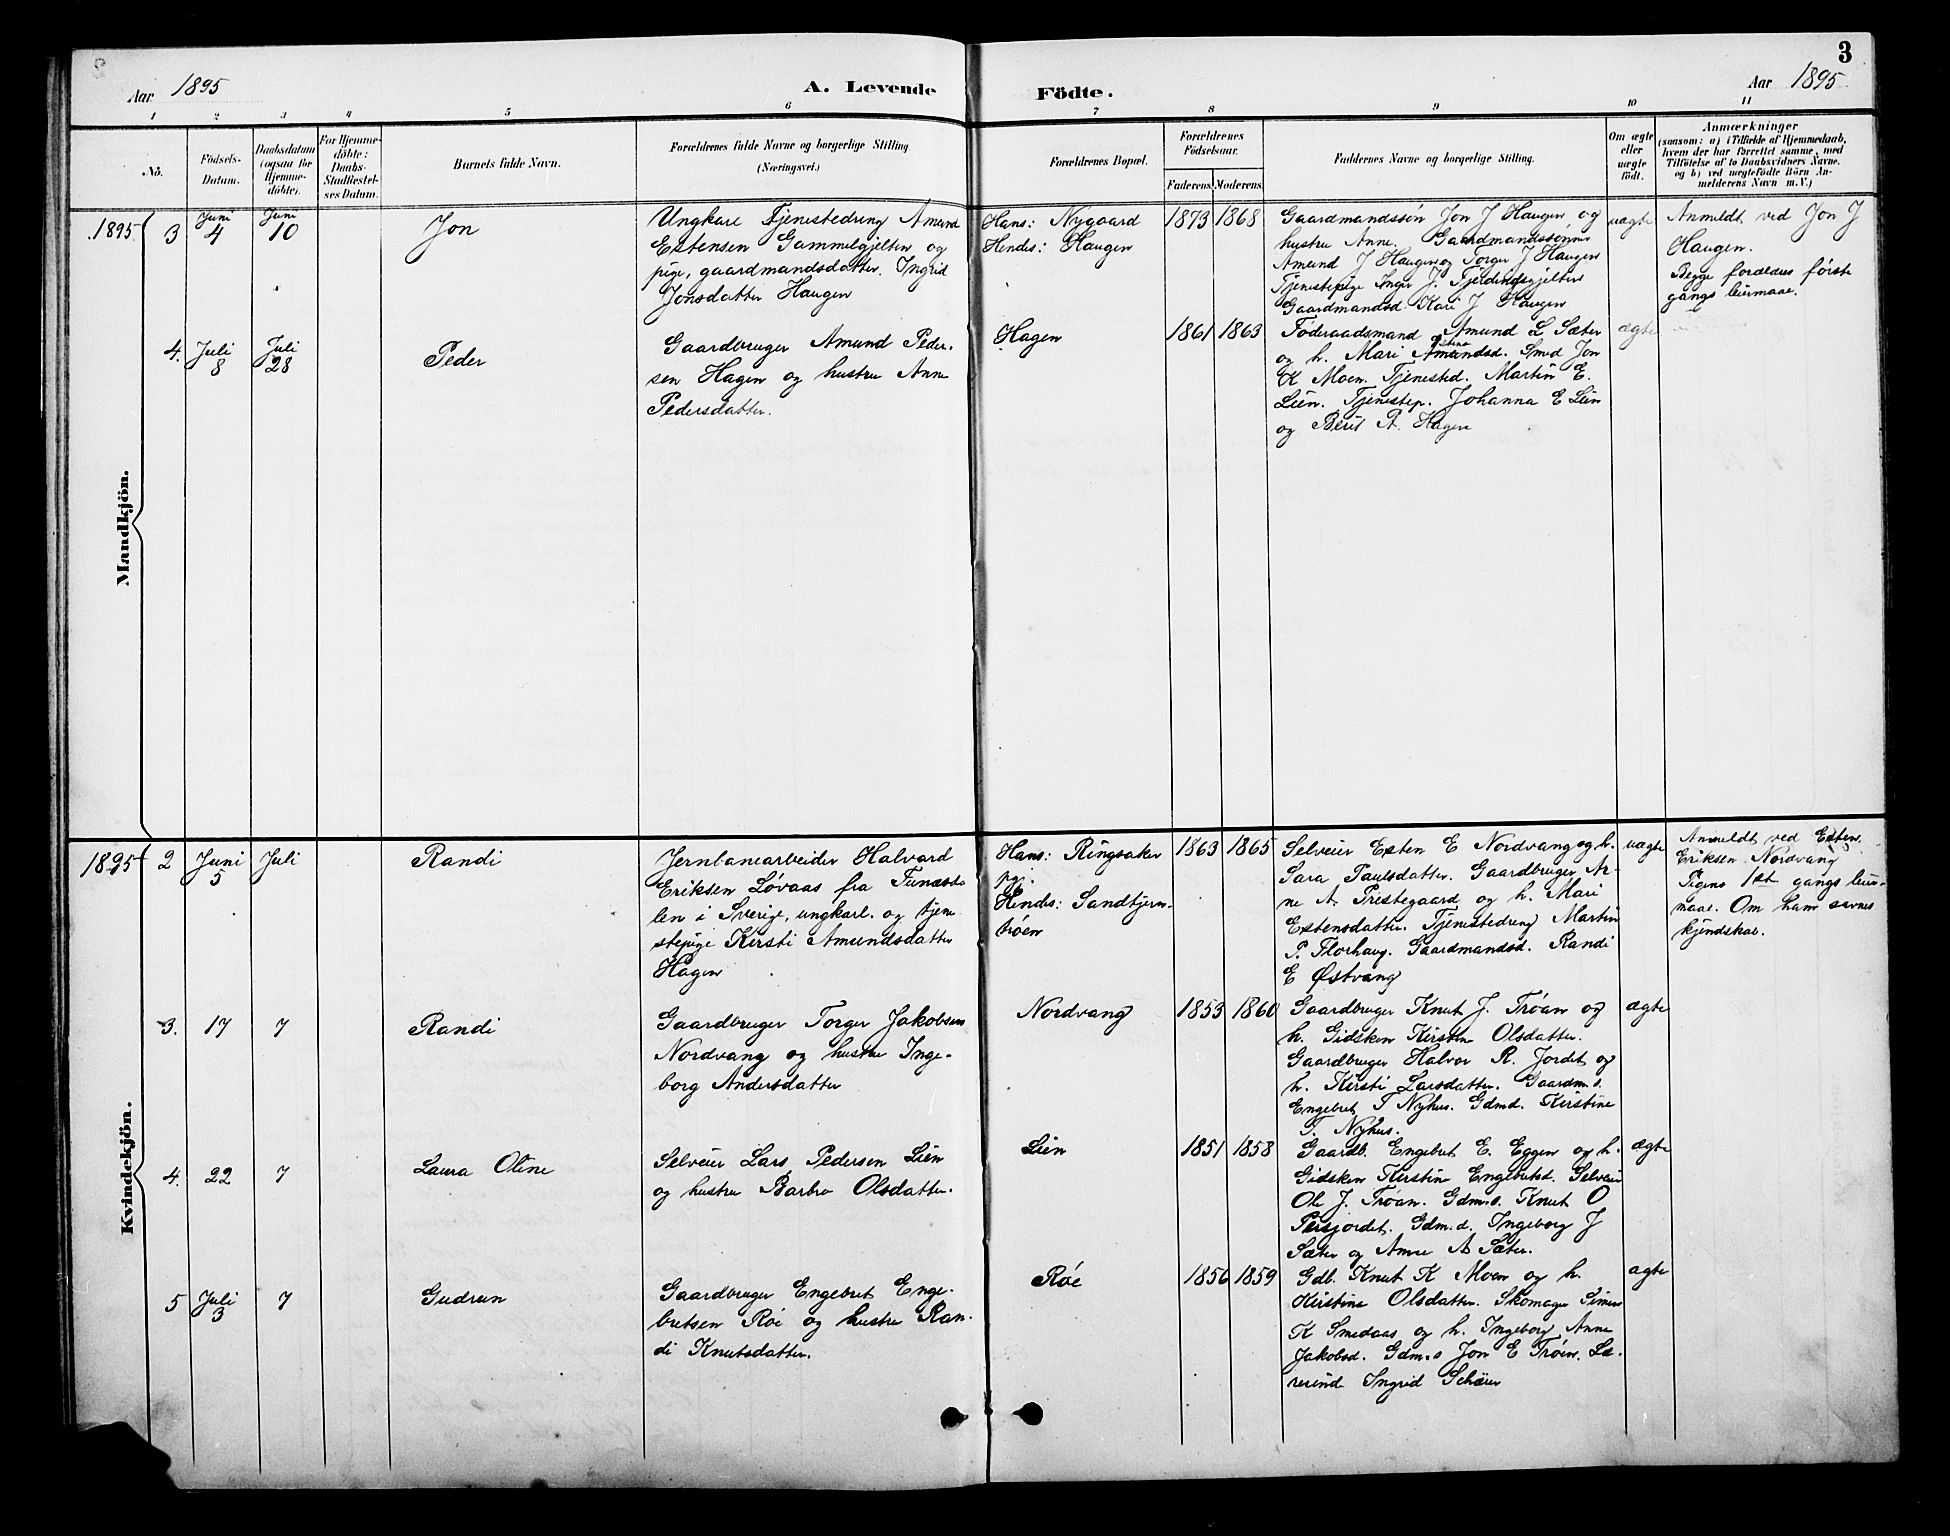 3
Aar 1895 A. Levende Födte. Aar 1895
1 2 3 4 5 6 7 8 9 10 11
No.
Födsels-
Datum.
Daabsdatum
(ogsaa for
Hjemme-
döbte).
For Hjemme-
döbte:
Daabs-
Stadfæstel-
ses Datum.
Barnets fulde Navn.
Forældrenes fulde Navne og borgerlige Stilling
(Næringsvei.)
Forældrenes Bopæl.
Forældrenes
Födselsaar.
Faderens Moderens
Faddernes Navne og borgerlige Stilling.
Om ægte
eller
uægte
født.
Anmærkninger
(saasom: a) i Tilfælde af Hjemmedaab,
hvem der har forrettet samme, med
Tilföielse af to Daabsvidners Navne.
og b) ved uægtefödte Börn An-
melderens Navn m. V.)
Mandkjön.
1895 3 Juni 4 Juni 10 Jon
Ungkarl Tjenestedreng Amund
Estensen Gammelgjelten og
pige, gaardmandsdatter. Ingrid
Jonsdatter Haugen
Hans: Nygaard
Hendes: Haugen
1873 1868
Gaardmandssøn Jon J Haugen og
hustru Anne. Gaardmandssønner
Amund J Haugen og Torger J Haugen
Tjenestepige Inger J. Fjerdingsgjelten
Gaardmandsd. Kari J Haugen
uægte
Anmeldt ved Jon J
Haugen.
Begge forældres første
gangs leiermaal.
4. Juli 8 Juli 28 Peder
Gaardbruger Amund Peder-
sen Hagen og hustru Anne
Pedersdatter.
Hagen
1861 1863
Føderaadsmand Amund L Sæter
og h. Mari Amundsd. Smed Jon
K Moen. Tjenested. Martin E.
Lien. Tjenestep. Johanna E Lien
og Berit P. Hagen
ægte
Kvindekjön.
1895 2 Juni 5 Juli Randi
Jernbanearbeider Halvard
Eriksen Løvaas fra Funæsda
len i Sverige, ungkarl. og tjene
stepige Kirsti Amundsdatter
Hagen
Hans: Ringsaker
pgj.
Hendes: Sandtjern-
brøen
1863 1865
Selveier Esten E Nordvang og h.
Sara Paulsdatter. Gaardbruger Ar-
ne A Prestegaard og h. Mari
Estensdatter. Tjenestedreng Martin
P. Florhaug. Gaardmandsd. Randi
E Østvang
uægte
Anmeldt ved Esten
Eriksen Nordvang
Pigens 1st gangs leier-
maal. Om ham savnes
kjendskab.
3. 17 7 Randi
Gaardbruger Torger Jakobsen
Nordvang og hustru Inge-
borg Andersdatter
Nordvang
1853 1860
Gaardbruger Knut J. Trøan og
h. Gidsken Kirstine Olsdatter.
Gaardbruger Halvor R. Jordet og
h. Kirsti Larsdatter. Gaardm.s.
Engebret T Nyhus. Gdmd. Kirstine
T. Nyhus.
ægte
4. 22 7 Laura Oline
Selveier Lars Pedersen Lien
og hustru Barbro Olsdatter.
Lien
1851 1858
Gaardb. Engebret E. Eggen og h.
Gidsken Kirstine Engebretsd. Selveier
Ole J. Trøan. Gdm.s. Knut O
Persjordet. Gdm.d. Ingeborg J
Sæter og Anne A Sæter.
ægte
5 Juli 3 7 Gudrun
Gaardbruger Engebret Enge-
bretsen Røe og hustru Ran-
di Knutsdatter.
Røe
1856 1859
Gdb. Knut K Moen og h.
Kirstine Olsdatter. Skomager Simen
K Smedaas og h. Ingeborg Anne
Jakobsd. Gdm.s Jon E Trøen. Læ-
rerinde Ingrid
ægte